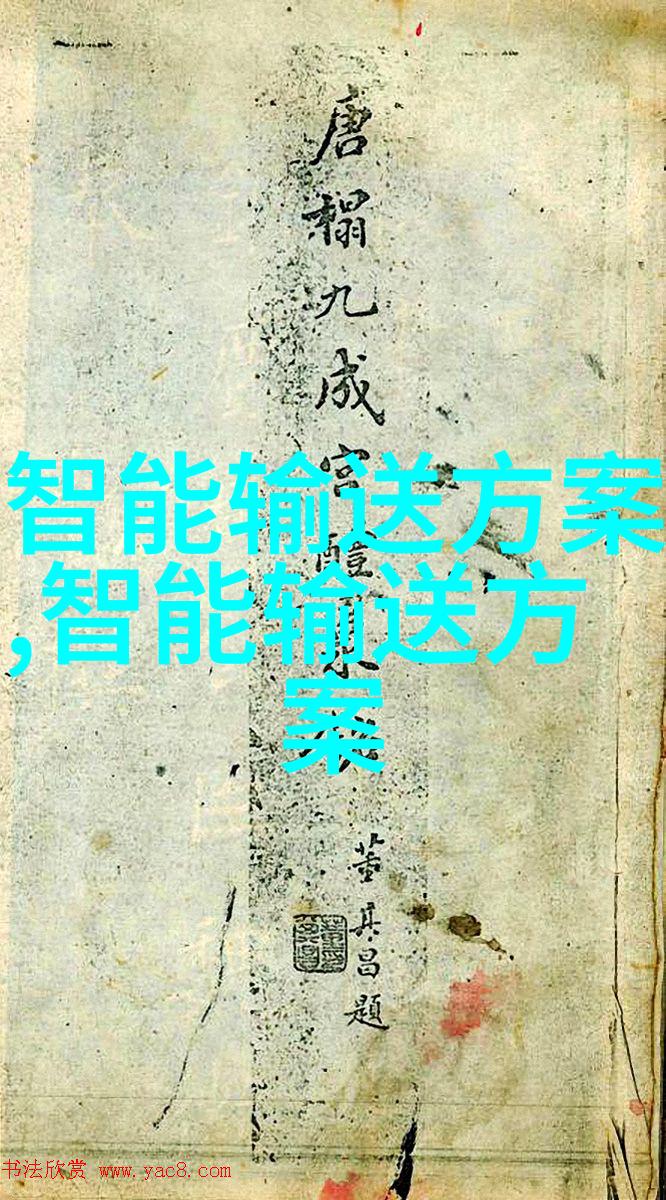 唐榻九成宫醴泉銘
董其昌題
智能输送方案
,智能输送方
案
书法欣赏 www.yac8.com